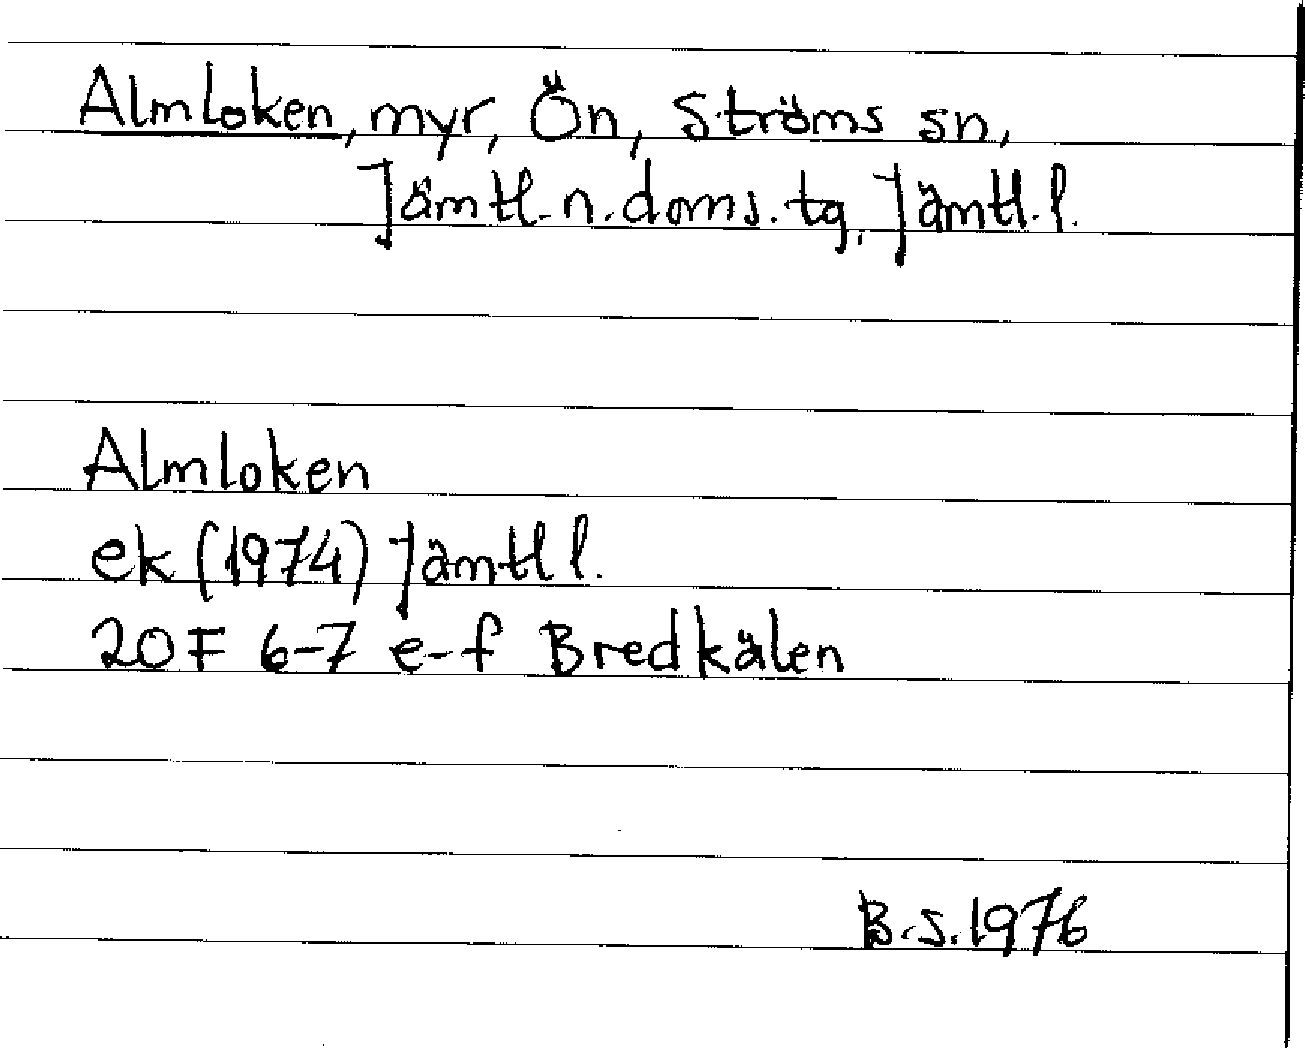 Almloken, myr, Ön, Ströms sn,
Jämtl. n. doms. tg, Jämtl. l.
Almloken
ek (1974) Jämtl l.
20F 6-7 e-f Bredkälen
B.S. 1976